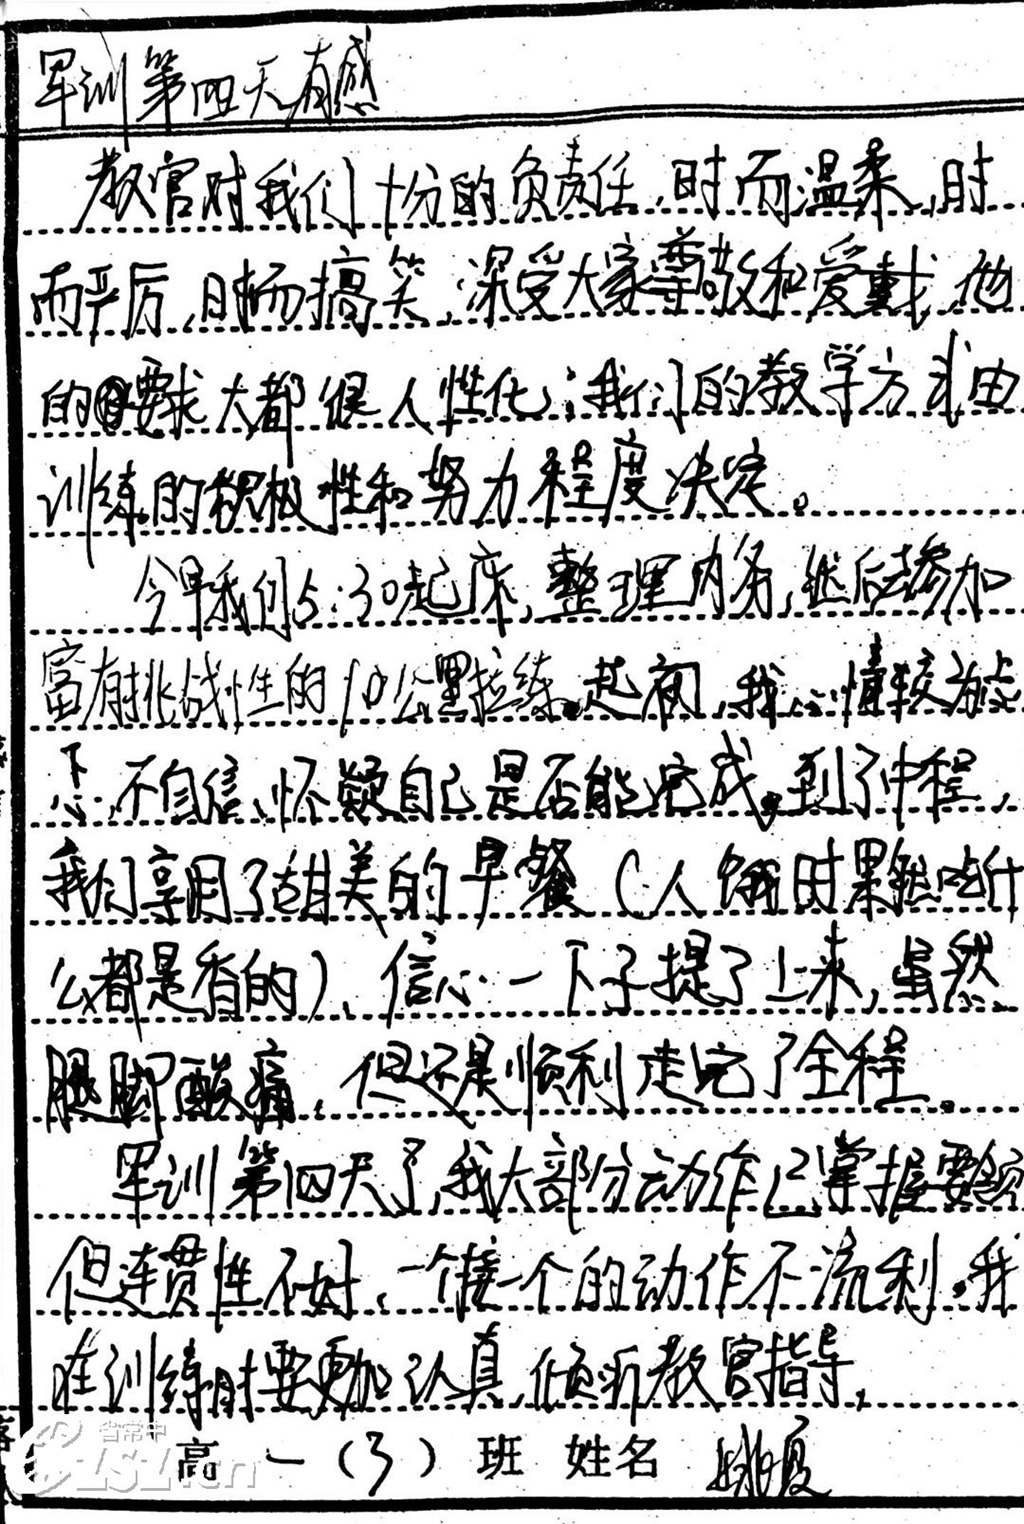 军训第四天有感
教官对我们十分的负责任,时而温柔,时
而严厉,时而搞笑,深受大家尊敬和爱戴,他
的要求大都很人性化;我们的教学方式由
训练的积极性和努力程度决定。
今早我们5:30起床,整理内务,然后去参加
富有挑战性的10公里拉练。起初,我心情较为忐
忑,不自信、怀疑自己是否能完成。到了中程,
我们享用了甜美的早餐(人饿时果然吃什
么都是香的)、信心一下子提了上来,虽然
腿脚酸痛,但还是顺利走完了全程。
军训第四天了,我大部分动作已掌握要领
但连贯性不好,一个接一个的动作不流利。我
在训练时要更加认真,倾听教官指导,
高一(3)班 姓名 姚夏
省常中